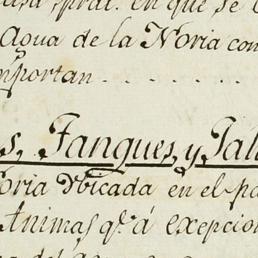 prat. en que se
Agua de la Noria con
mportan
s, Tanques, y
oria Ubicada en el pa
Animas q.e á excepcion